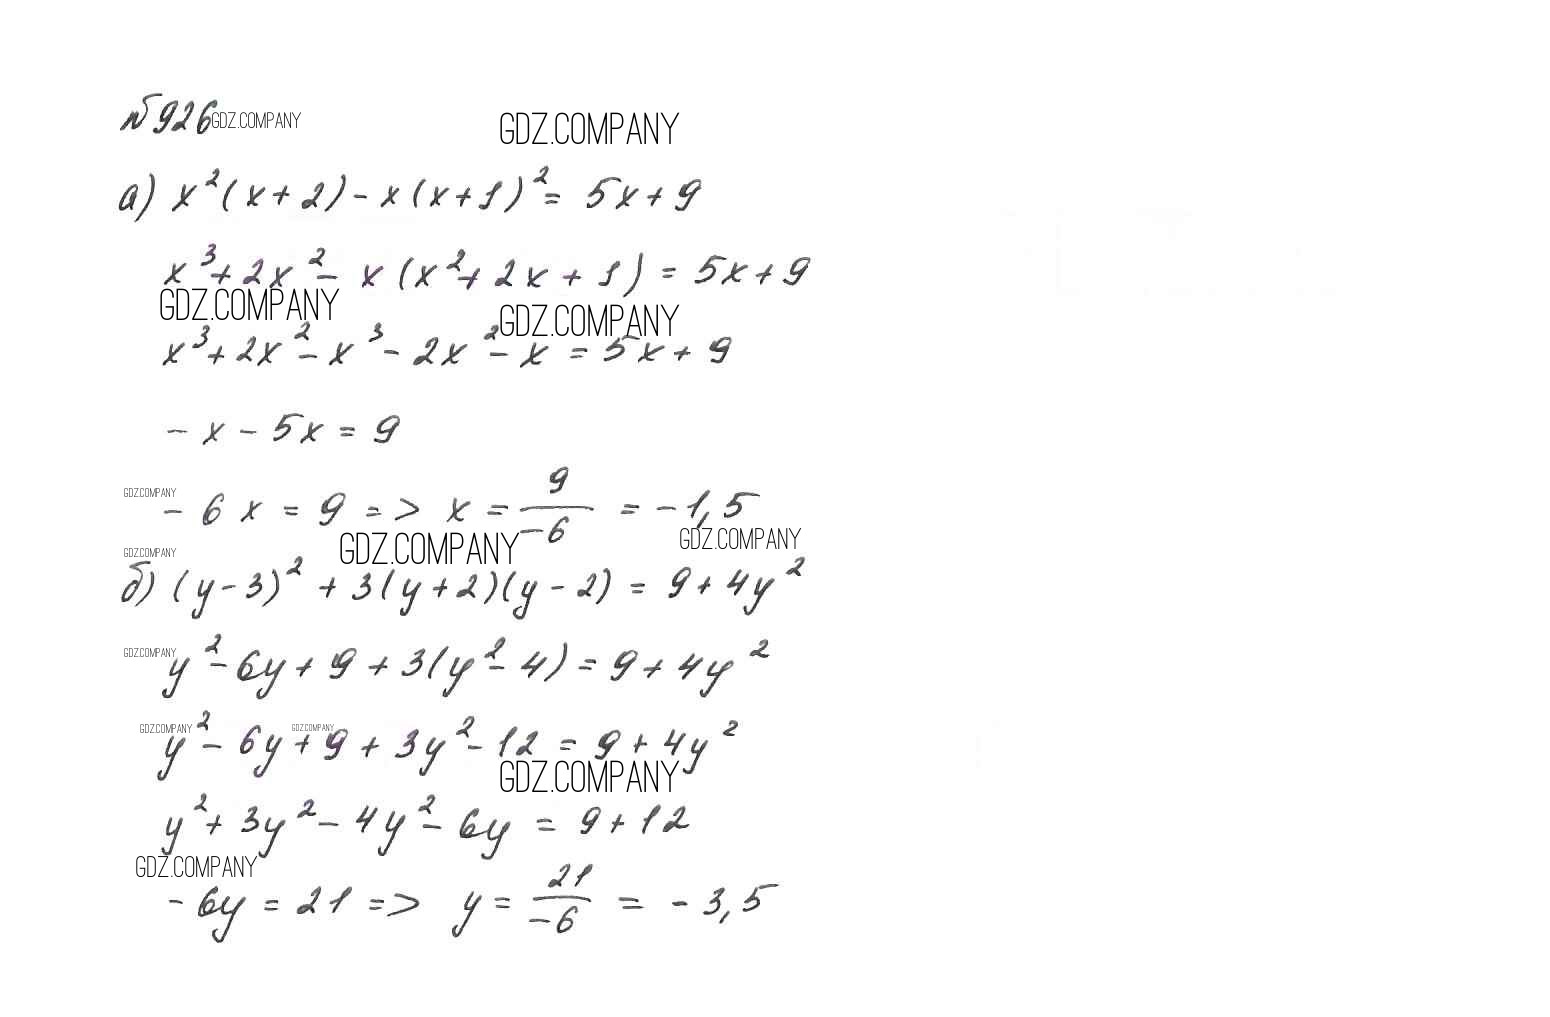 №926 GDZ.COMPANY GDZ.COMPANY
а) x²(x+2)-x(x+1)²= 5x+9
x³+2x²- x(x²+2x+1)=5x+9
GDZ.COMPANY GDZ.COMPANY
x³+2x²-x³-2x²-x=5x+9
-x-5x=9
GDZ.COMPANY
-6x=9 => x=9/-6 = -1,5
GDZ.COMPANY GDZ.COMPANY
GDZ.COMPANY
б) (y-3)² + 3(y+2)(y-2) = 9+4y²
GDZ.COMPANY
y²-6y+9+3(y²-4)=9+4y²
GDZ.COMPANY GDZ.COMPANY
y²-6y+9+3y²-12=9+4y²
GDZ.COMPANY
y²+3y²-4y²-6y = 9+12
GDZ.COMPANY
-6y=21 => y=21/-6 = -3,5